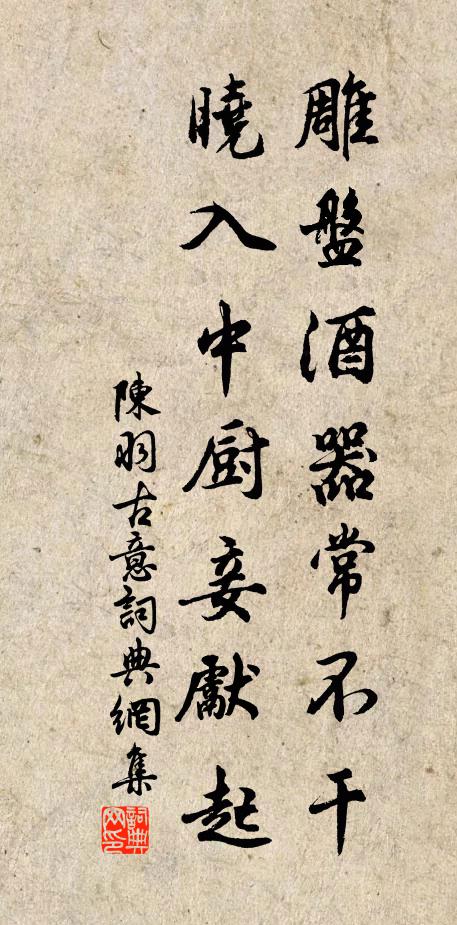 雕盤酒器常不干
曉入中厨妾獻起
陳羽古意詞典網集
詞典
网印